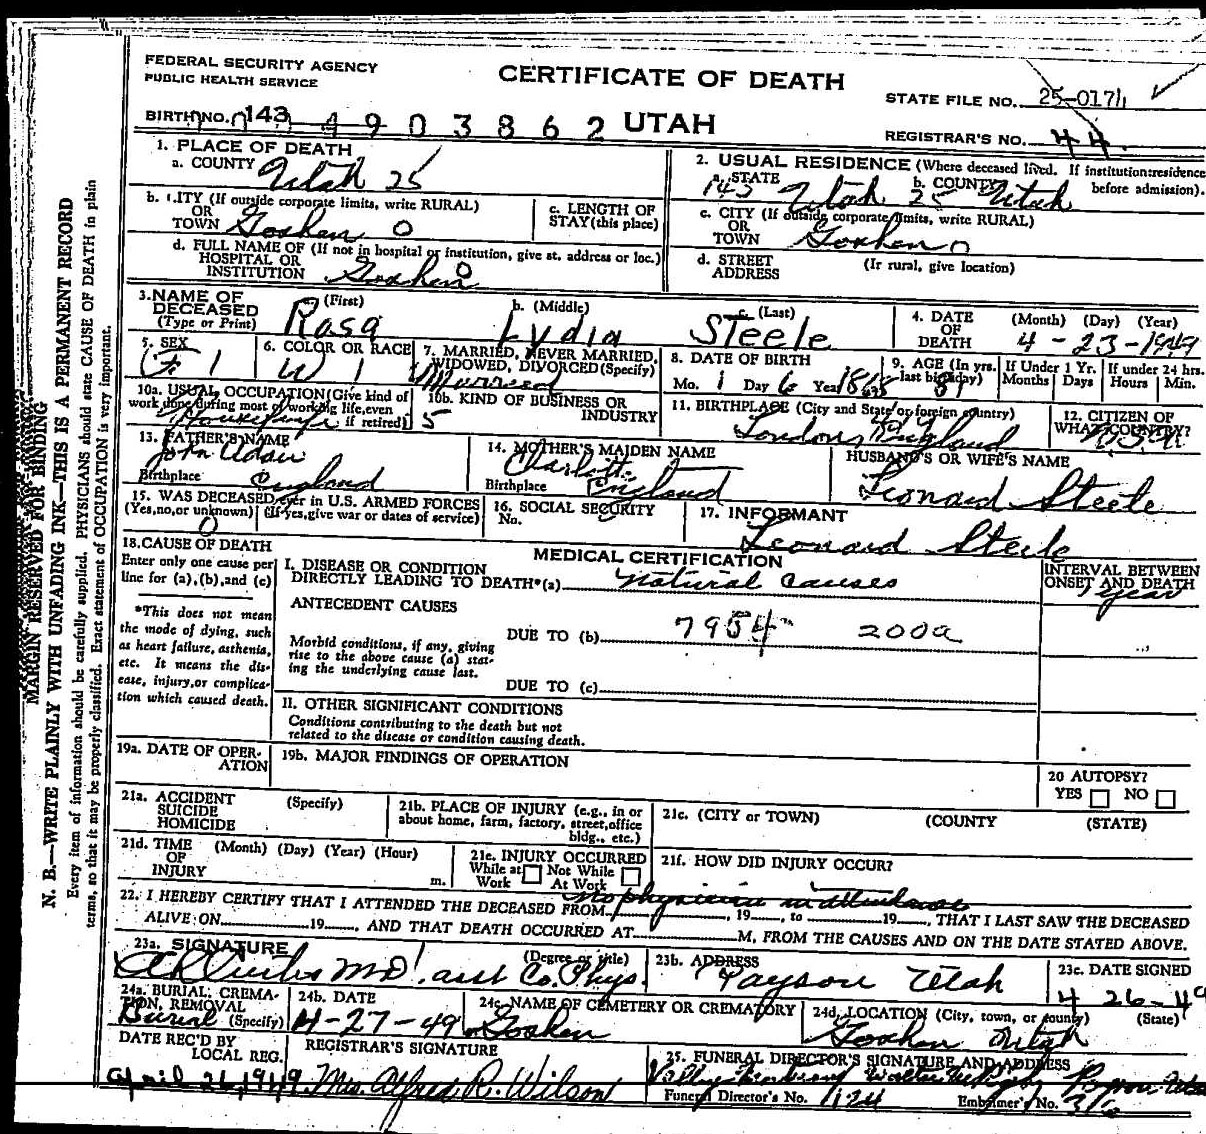 FEDERAL SECURITY AGENCY
PUBLIC HEALTH SERVICE
CERTIFICATE OF DEATH
STATE FILE NO. 25-0171
BIRTH NO. 143 4903862 UTAH
REGISTRAR'S NO. 44.
1. PLACE OF DEATH
a. COUNTY Utah 25
2. USUAL RESIDENCE (Where deceased lived. If institution:residence before admission).
a. STATE 143 Utah 25 b. COUNTY Utah
b. CITY (If outside corporate limits, write RURAL)
OR
TOWN Goshen 0
c. LENGTH OF
STAY(this place)
c. CITY (If outside corporate limits, write RURAL)
OR
TOWN Goshen 0
d. FULL NAME OF (If not in hospital or institution, give st. address or loc.)
HOSPITAL OR
INSTITUTION Goshen 0
d. STREET (Ir rural, give location)
ADDRESS
3. NAME OF DECEASED (Type or Print) (First) Rosa b. (Middle) Lydia c. (Last) Steele
4. DATE OF DEATH (Month) (Day) (Year) 4-23-1949
5. SEX F 1
6. COLOR OR RACE W 1
7. MARRIED, NEVER MARRIED, WIDOWED, DIVORCED (Specify) Married
8. DATE OF BIRTH Mo. 1 Day 6 Year 1868
9. AGE (In yrs. last birthday) 81
If Under 1 Yr. Months Days
If under 24 hrs. Hours Min.
10a. USUAL OCCUPATION (Give kind of work done during most of working life, even if retired) Housewife
10b. KIND OF BUSINESS OR INDUSTRY 5
11. BIRTHPLACE (City and State or foreign country) London, England
12. CITIZEN OF WHAT COUNTRY? U.S.A.
13. FATHER'S NAME John
Birthplace England
14. MOTHER'S MAIDEN NAME Charlotte
Birthplace England
HUSBAND'S OR WIFE'S NAME
Leonard Steele
15. WAS DECEASED ever in U.S. ARMED FORCES
(Yes,no,or unknown) (If yes,give war or dates of service)
0
16. SOCIAL SECURITY
No.
17. INFORMANT
Leonard Steele
18. CAUSE OF DEATH
Enter only one cause per line for (a),(b),and (c)
*This does not mean the mode of dying, such as heart failure, asthenia, etc. It means the disease, injury,or complication which caused death.
MEDICAL CERTIFICATION
I. DISEASE OR CONDITION
DIRECTLY LEADING TO DEATH*(a) Natural Causes
INTERVAL BETWEEN
ONSET AND DEATH
1 year
ANTECEDENT CAUSES
DUE TO (b) 7954 200a
Morbid conditions, if any, giving rise to the above cause (a) stating the underlying cause last.
DUE TO (c)
II. OTHER SIGNIFICANT CONDITIONS
Conditions contributing to the death but not
related to the disease or condition causing death.
19a. DATE OF OPERATION
19b. MAJOR FINDINGS OF OPERATION
20 AUTOPSY?
YES NO
21a. ACCIDENT (Specify)
SUICIDE
HOMICIDE
21b. PLACE OF INJURY (e.g., in or about home, farm, factory, street,office bldg., etc.)
21c. (CITY or TOWN) (COUNTY (STATE)
21d. TIME (Month) (Day) (Year) (Hour)
OF
INJURY m.
21e. INJURY OCCURRED
While at Work Not While At Work
21f. HOW DID INJURY OCCUR?
no physician in attendance
22. I HEREBY CERTIFY THAT I ATTENDED THE DECEASED FROM , 19 , to 19 , THAT I LAST SAW THE DECEASED
ALIVE ON 19 , AND THAT DEATH OCCURRED AT M, FROM THE CAUSES AND ON THE DATE STATED ABOVE.
23a. SIGNATURE (Degree or title)
MD. asst Co. Phys.
23b. ADDRESS
Payson Utah
23c. DATE SIGNED
4 26-49
24a. BURIAL, CREMATION, REMOVAL (Specify) Burial
24b. DATE
4-27-49
24c. NAME OF CEMETERY OR CREMATORY
Goshen
24d. LOCATION (City, town, or county) (State)
Goshen Utah
DATE REC'D BY
LOCAL REG.
April 26, 1949
REGISTRAR'S SIGNATURE
Mrs. Alfred R. Wilson
25. FUNERAL DIRECTOR'S SIGNATURE AND ADDRESS
Valley Mortuary
Funeral Director's No. 124 Embalmer's No.
MARGIN RESERVED FOR BINDING
N. B.—WRITE PLAINLY WITH UNFADING INK—THIS IS A PERMANENT RECORD
Every item of information should be carefully supplied. PHYSICIANS should state CAUSE OF DEATH in plain
terms, so that it may be properly classified. Exact statement of OCCUPATION is very important.